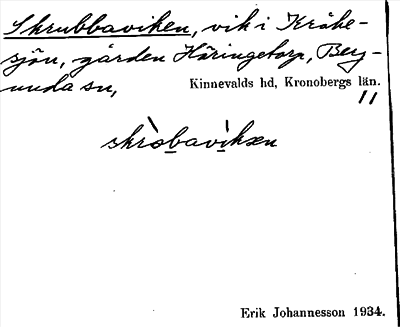 Skrubbaviken, vik i Kråke-
sjön, gården Häringetorp, Berg-
unda sn,
Kinnevalds hd, Kronobergs län.
11
skròbavìkæn
Erik Johannesson 1934.